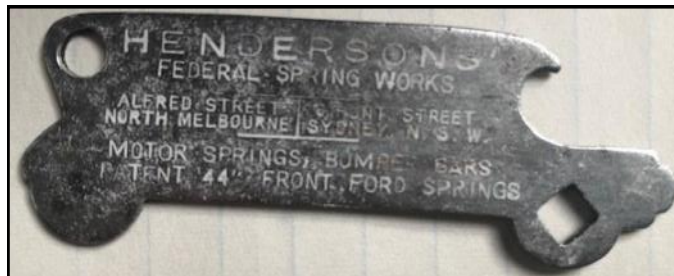 HENDERSONS'
FEDERAL SPRING WORKS
ALFRED STREET STREET
NORTH MELBOURNE SYDNEY, N.S.W.
MOTOR SPRINGS, BUMPER BARS
PATENT "44" FRONT FORD SPRINGS